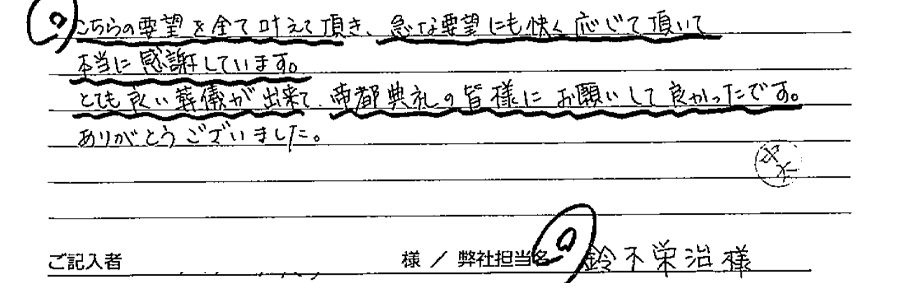 こちらの要望を全て叶えて頂き、急な要望にも快く応じて頂いて
本当に感謝しています。
とても良い葬儀が出来て、帝都典礼の皆様にお願いして良かったです。
ありがとうございました。
ご記入者 様 / 弊社担当名 鈴木栄治様